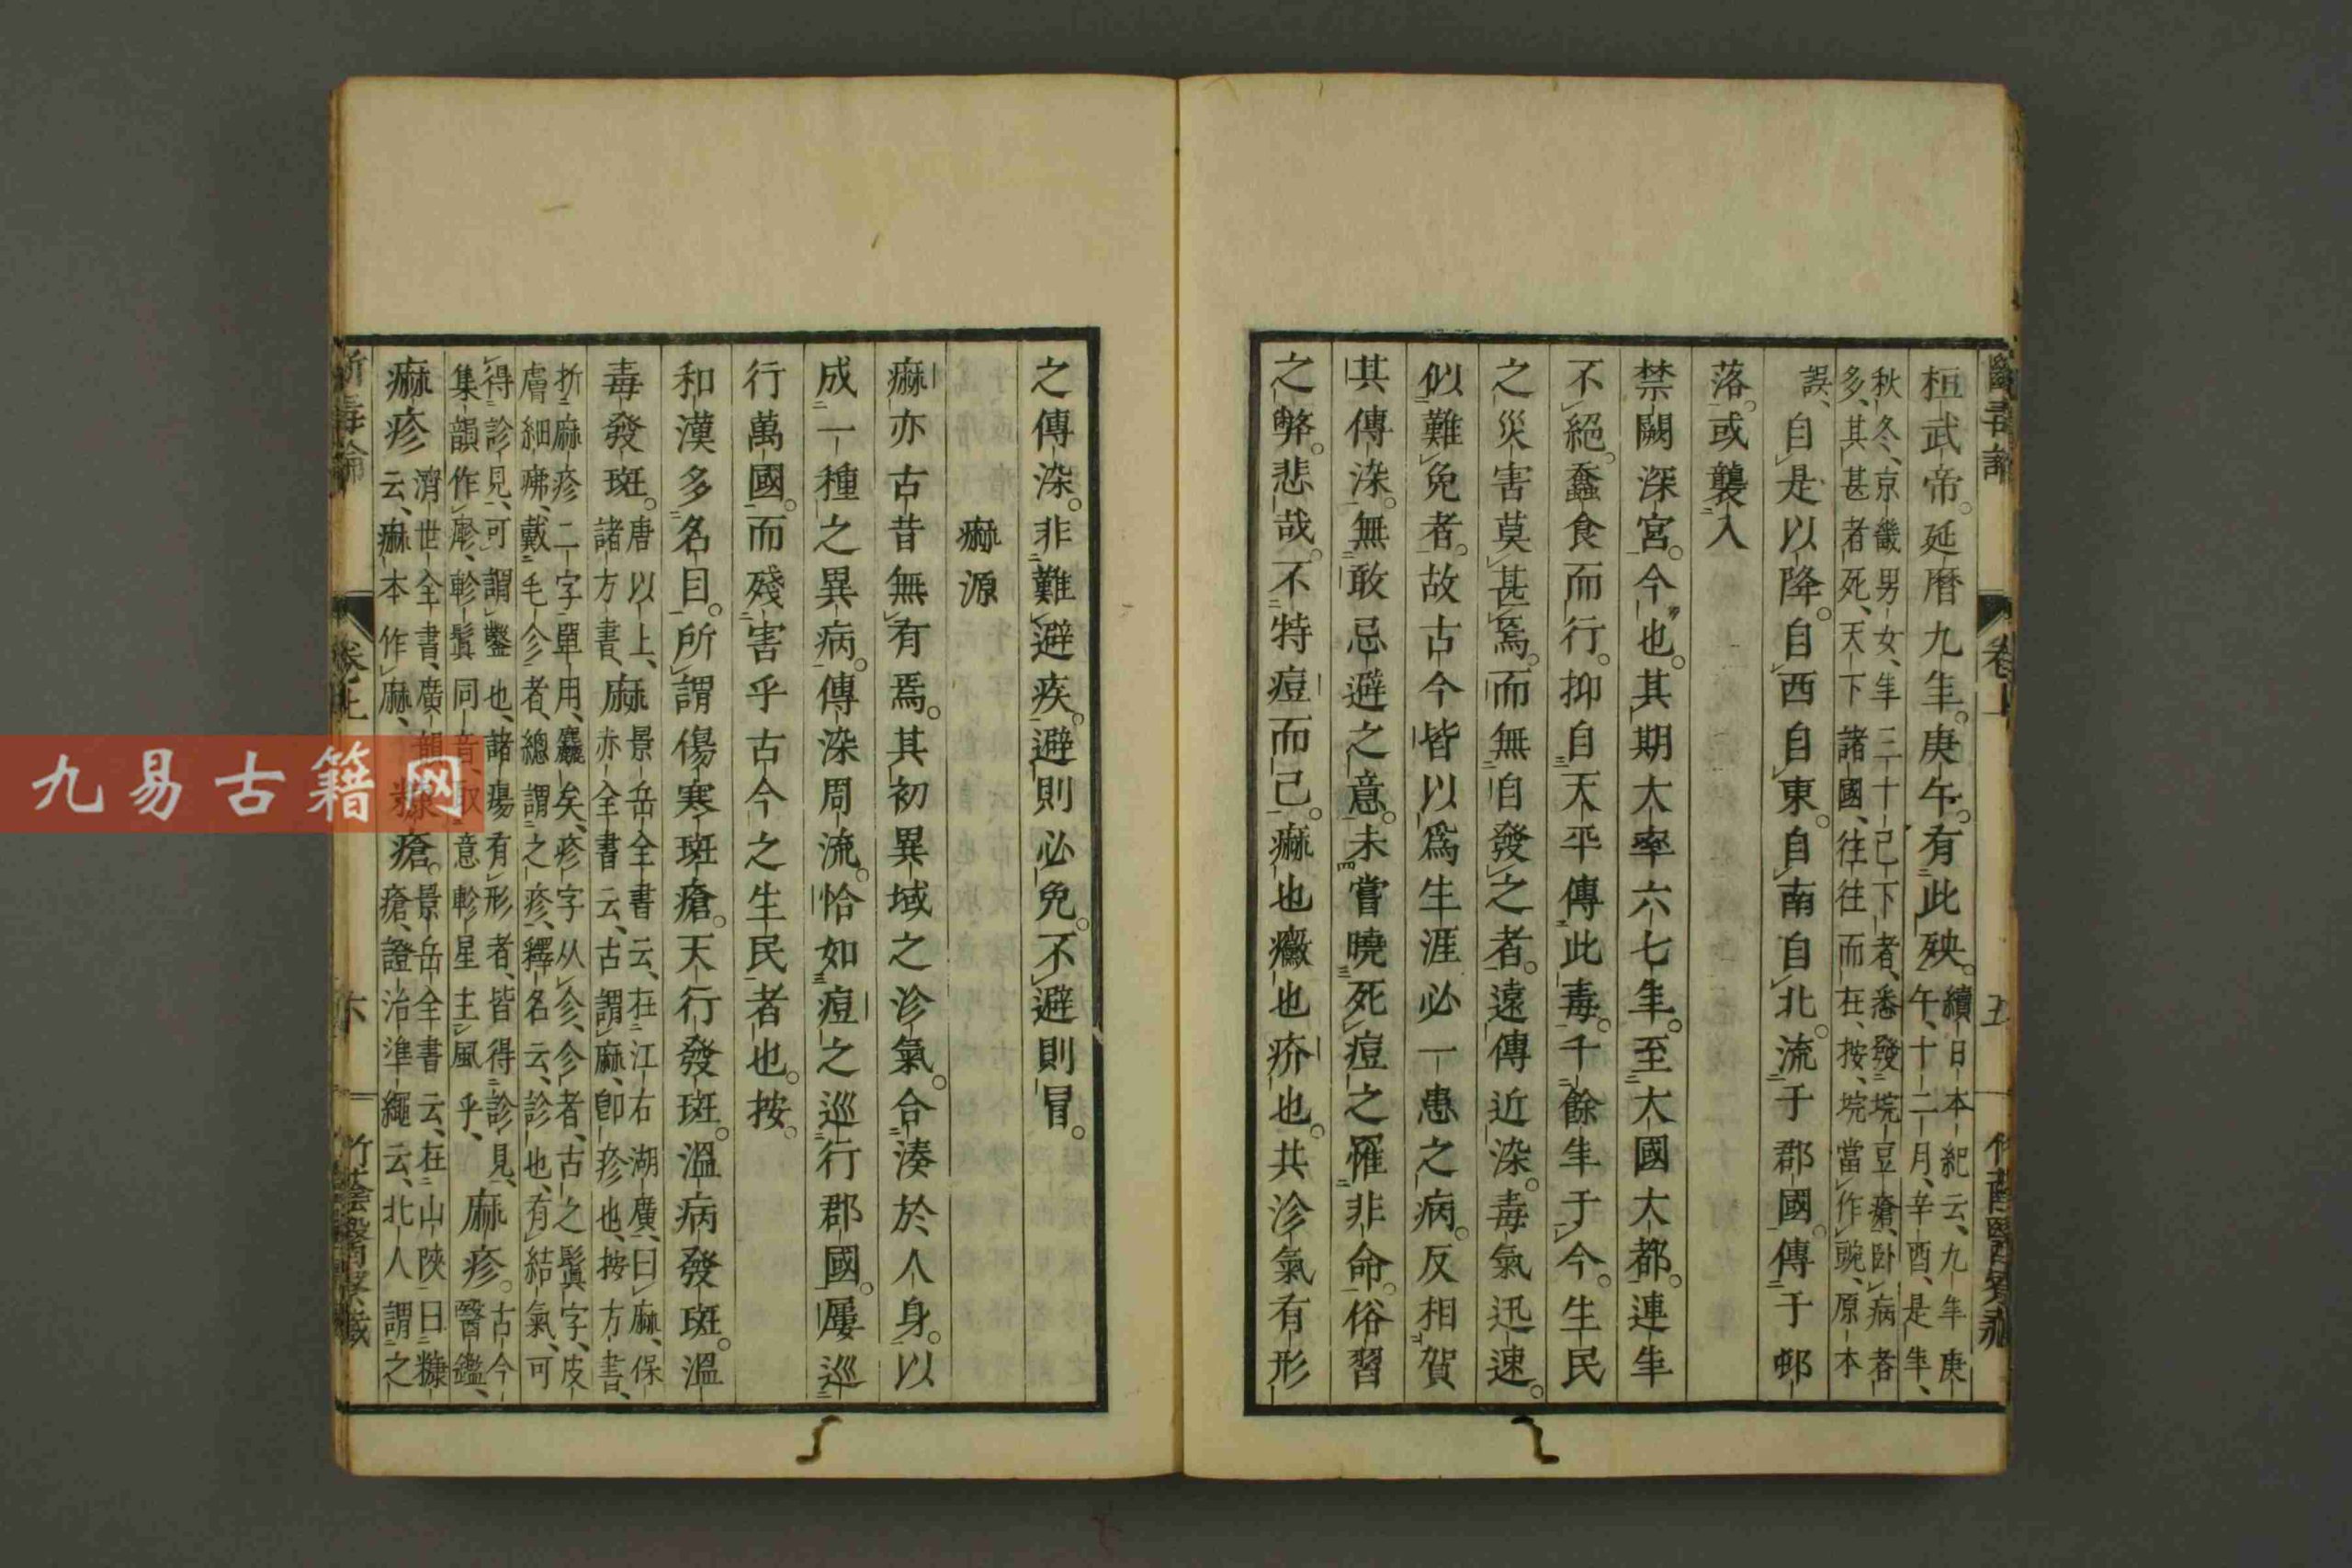 桓武帝。延曆九年。庚午。有此殃。續日本紀云、九年庚午、十二月、辛酉、是年、
秋冬、京畿男女、年三十已下者、悉發埦豆瘡、臥病者多、其甚者死、天下諸國、往往而在、按、埦當作豌、原本
誤、自是以降。自西自東。自南自北。流于郡國。傳于邨
落。或襲入
禁闕深宮。今也。其期大率六七年。至大國大都。連年
不絕。蠶食而行。抑自天平傳此毒。千餘年于今。生民
之災害莫甚焉。而無自發之者。遠傳近染。毒氣迅速。
似難免者。故古今皆以爲生涯必一患之病。反相賀
其傳染。無敢忌避之意。未嘗曉死痘之罹非命。俗習
之弊。悲哉。不特痘而已。痲也黴也疥也。共沴氣有形
之傳染。非難避疾。避則必免。不避則冒。
痲源
痲亦古昔無有焉。其初異域之沴氣。合湊於人身。以
成一種之異病。傳染周流。恰如痘之巡行郡國。屢巡
行萬國。而殘害乎古今之生民者也。按。
和漢多名目。所謂傷寒斑瘡。天行發斑。溫病發斑。溫
毒發斑。唐以上、諸方書、麻景岳全書云、在江右湖廣、曰麻、亦全書云、古謂麻、卽疹也、按方書、保
折麻疹二字單用、麤矣、疹字从㐱、㐱者、古之鬒字、皮膚細疿、戴毛㐱者、總謂之疹、釋名云、診也、有結氣、可
得診見、可謂鑿也、諸瘍有形者、皆得診見、集韻作㾺、軫鬒同音、取意軫星主風乎、麻疹。古今醫鑑、
痲疹濟世全書、廣韻云、痲本作麻、糠瘡。景岳全書云、在山陝曰糠瘡、證治準繩云、北人謂之
卷上
五
卷上
六
九易古籍网